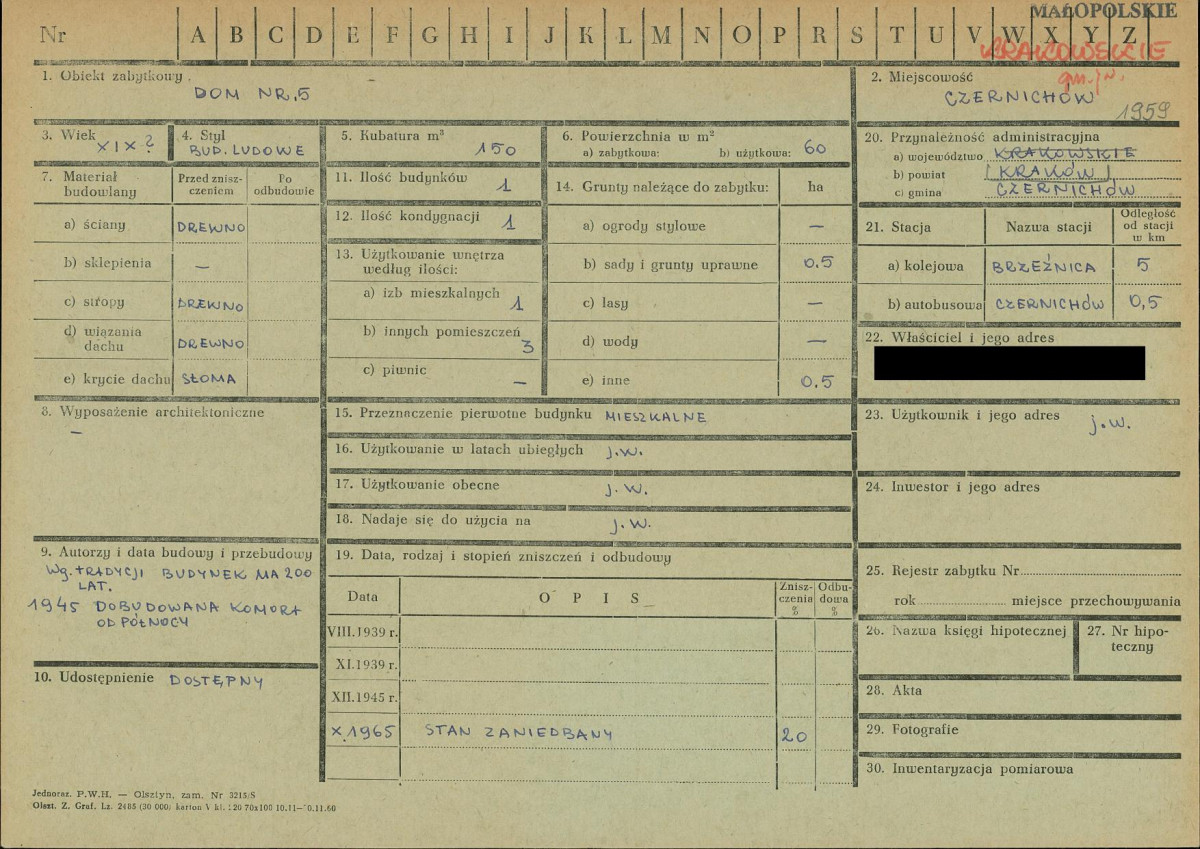 MAŁOPOLSKIE
Nr A B C D E F G H I J K L M N O P R S T U V W X Y Z
KRAKOWSKIE
gm. j/w.
1. Obiekt zabytkowy
DOM NR. 5
2. Miejscowość
CZERNICHÓW
1959
3. Wiek
XIX ?
4. Styl
BUD. LUDOWE
5. Kubatura m³
150
6. Powierzchnia w m²
a) zabytkowa: b) użytkowa: 60
7. Materiał budowlany
Przed znisz-
czeniem
Po
odbudowie
a) ściany DREWNO
b) sklepienia —
c) stropy DREWNO
d) wiązania
dachu DREWNO
e) krycie dachu SŁOMA
8. Wyposażenie architektoniczne
—
9. Autorzy i data budowy i przebudowy
Wg. TRADYCJI BUDYNEK MA 200
LAT.
1945 DOBUDOWANA KOMORA
OD PÓŁNOCY
10. Udostępnienie DOSTĘPNY
11. Ilość budynków
1
12. Ilość kondygnacji
1
13. Użytkowanie wnętrza
według ilości:
a) izb mieszkalnych
1
b) innych pomieszczeń
3
c) piwnic
—
14. Grunty należące do zabytku: ha
a) ogrody stylowe —
b) sady i grunty uprawne 0.5
c) lasy —
d) wody —
e) inne 0.5
15. Przeznaczenie pierwotne budynku MIESZKALNE
16. Użytkowanie w latach ubiegłych j.w.
17. Użytkowanie obecne j.w.
18. Nadaje się do użycia na j.w.
19. Data, rodzaj i stopień zniszczeń i odbudowy
Data OPIS Znisz-
czenia
% Odbu-
dowa
%
VIII. 1939 r.
XI. 1939 r.
XII. 1945 r.
X.1965 STAN ZANIEDBANY 20
20. Przynależność administracyjna
a) województwo KRAKOWSKIE
b) powiat KRAKÓW
c) gmina CZERNICHÓW
21. Stacja Nazwa stacji Odległość
od stacji
w km
a) kolejowa BRZEŹNICA 5
b) autobusowa CZERNICHÓW 0,5
22. Właściciel i jego adres
23. Użytkownik i jego adres
j.w.
24. Inwestor i jego adres
25. Rejestr zabytku Nr
rok miejsce przechowywania
26. Nazwa księgi hipotecznej
27. Nr hipo-
teczny
28. Akta
29. Fotografie
30. Inwentaryzacja pomiarowa
Jednoraz. P.W.H. — Olsztyn, zam. Nr 3215/S
Olszt. Z. Graf. Lz. 2485 (30 000) karton V kl.